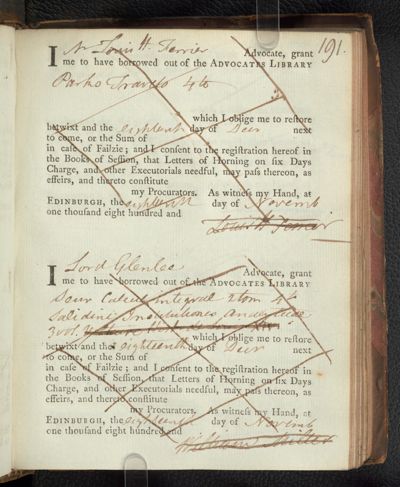 191.
I Mr Louis H. Ferrier Advocate, grant
me to have borrowed out of the ADVOCATES LIBRARY
Parks Travels 4to
which I oblige me to reſtore
betwixt and the eighteenth day of Decr next
to come, or the Sum of
in caſe of Failzie; and I conſent to the regiſtration hereof in
the Books of Seſſion, that Letters of Horning on ſix Days
Charge, and other Executorials needful, may paſs thereon, as
effeirs, and thereto conſtitute
my Procurators. As witneſs my Hand, at
EDINBURGH, the eighteenth day of Novemb
one thouſand eight hundred and
Louis H Ferrier
I Lord Glenlee Advocate, grant
me to have borrowed out of the ADVOCATES LIBRARY
Calcul integral 2 tom 4to
Institutiones
3 vol.
which I oblige me to reſtore
betwixt and the eighteenth day of Decr next
to come, or the Sum of
in caſe of Failzie; and I conſent to the regiſtration hereof in
the Books of Seſſion, that Letters of Horning on ſix Days
Charge, and other Executorials needful, may paſs thereon, as
effeirs, and thereto conſtitute
my Procurators. As witneſs my Hand, at
EDINBURGH, the eighteenth day of Novemb
one thouſand eight hundred and
William Miller